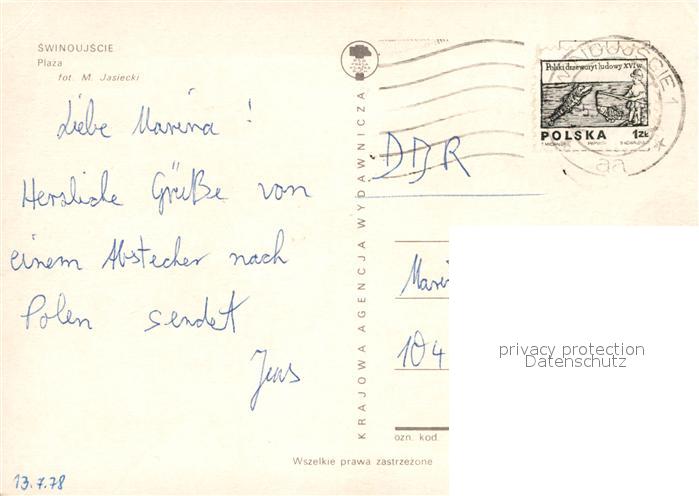 ŚWINOUJŚCIE
Plaza
fot. M. Jasiecki
Liebe Marina!
Herzliche Grüße von
einem Abstecher nach
Polen sendet
Jens
13.7.78
KRAJOWA AGENCJA WYDAWNICZA
Polski drzeworyt ludowy XVI w.
POLSKA 1 ZŁ
ŚWINOUJŚCIE 1
aa
DDR
Mari
104
privacy protection
Datenschutz
ozn. kod.
Wszelkie prawa zastrzeżone